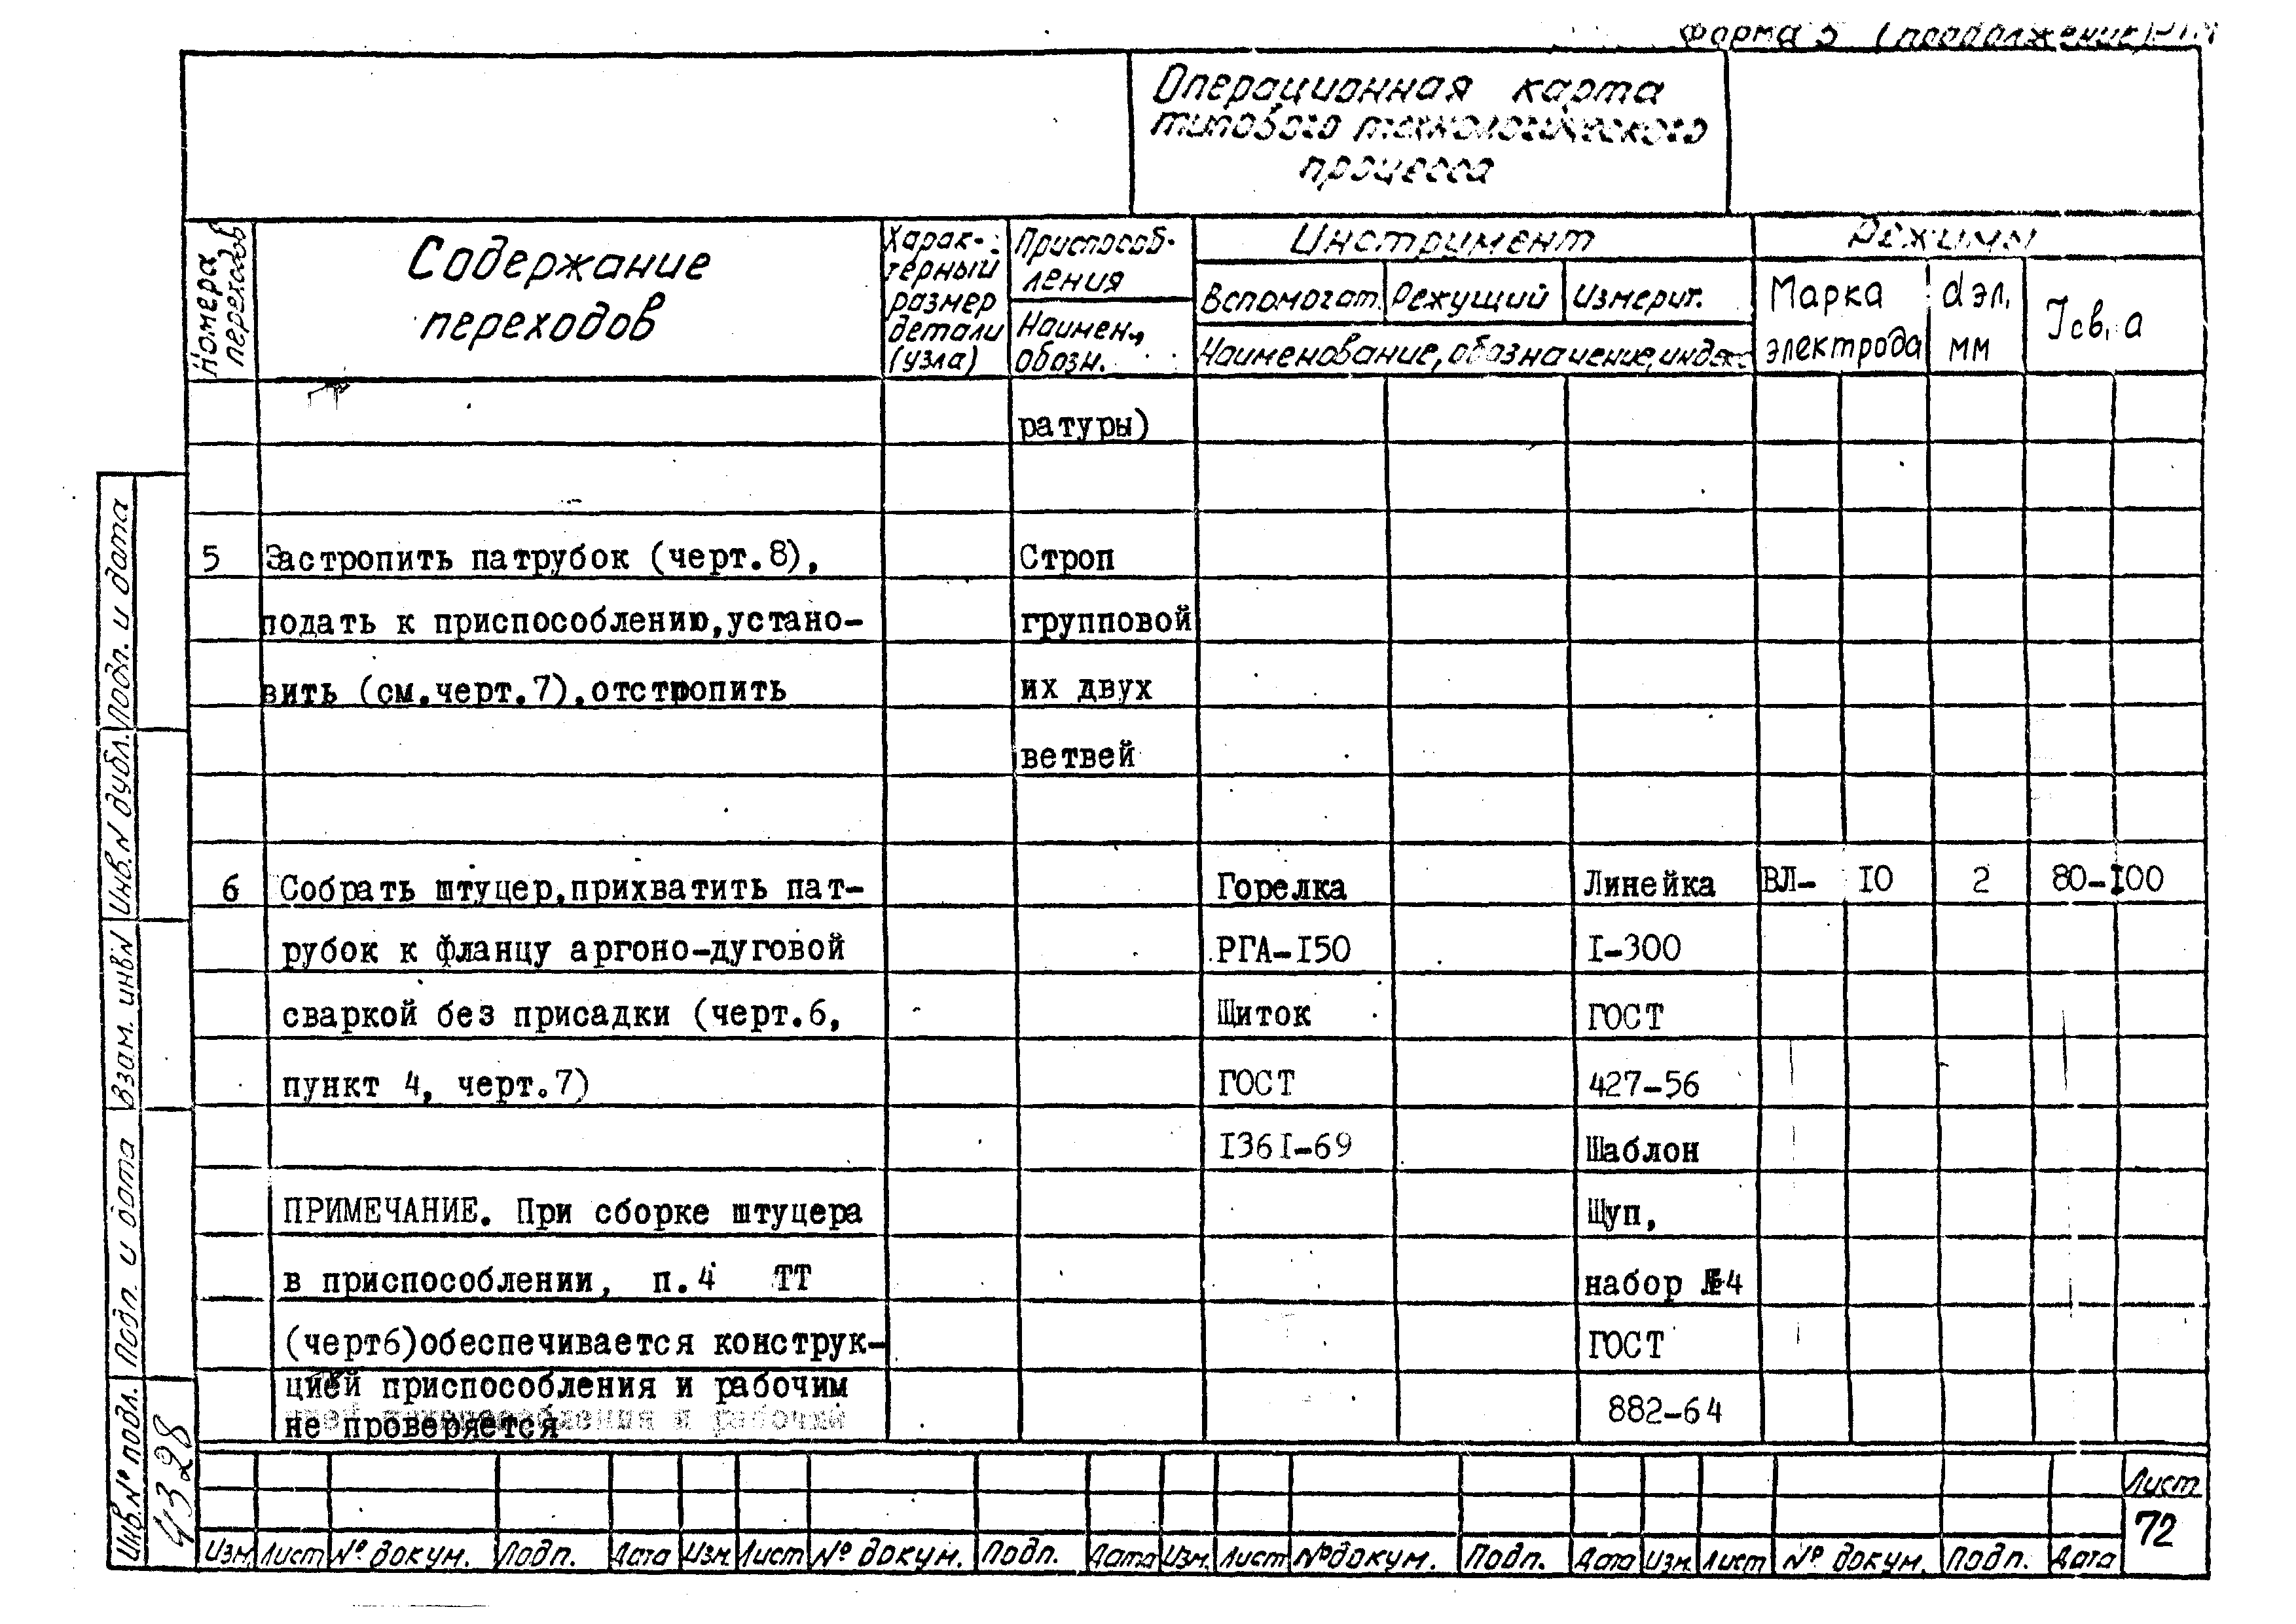 Форма 5 (продолжение)
Операционная карта
типового технологического
процесса
Номера переходов
Содержание
переходов
Харак-
терный
размер
детали
(узла)
Приспособ-
ления
Наимен.,
обозн.
Инструмент
Вспомогат. Режущий Измерит.
Наименование, обозначение, индекс
Режимы
Марка
электрода
dэл,
мм
Jсв, а
ратуры)
5 Застропить патрубок (черт.8), Строп
подать к приспособлению,устано- групповой
вить (см.черт.7),отстропить их двух
ветвей
6 Собрать штуцер,прихватить пат- Горелка Линейка ВЛ- I0 2 80-I00
рубок к фланцу аргоно-дуговой РГА-I50 I-300
сваркой без присадки (черт.6, Щиток ГОСТ
пункт 4, черт.7) ГОСТ 427-56
I36I-69 Шаблон
ПРИМЕЧАНИЕ. При сборке штуцера Щуп,
в приспособлении, п.4 ТТ набор №4
(черт6)обеспечивается конструк- ГОСТ
цией приспособления и рабочим 882-64
не проверяется
Подп. и дата
Инв.N дубл.
Взам. инв.N
Подп. и дата
Инв.№ подл.
4328
Лист
72
Изм. Лист № докум. Подп. Дата Изм. Лист № докум. Подп. Дата Изм. Лист № докум. Подп. Дата Изм. Лист № докум. Подп. Дата